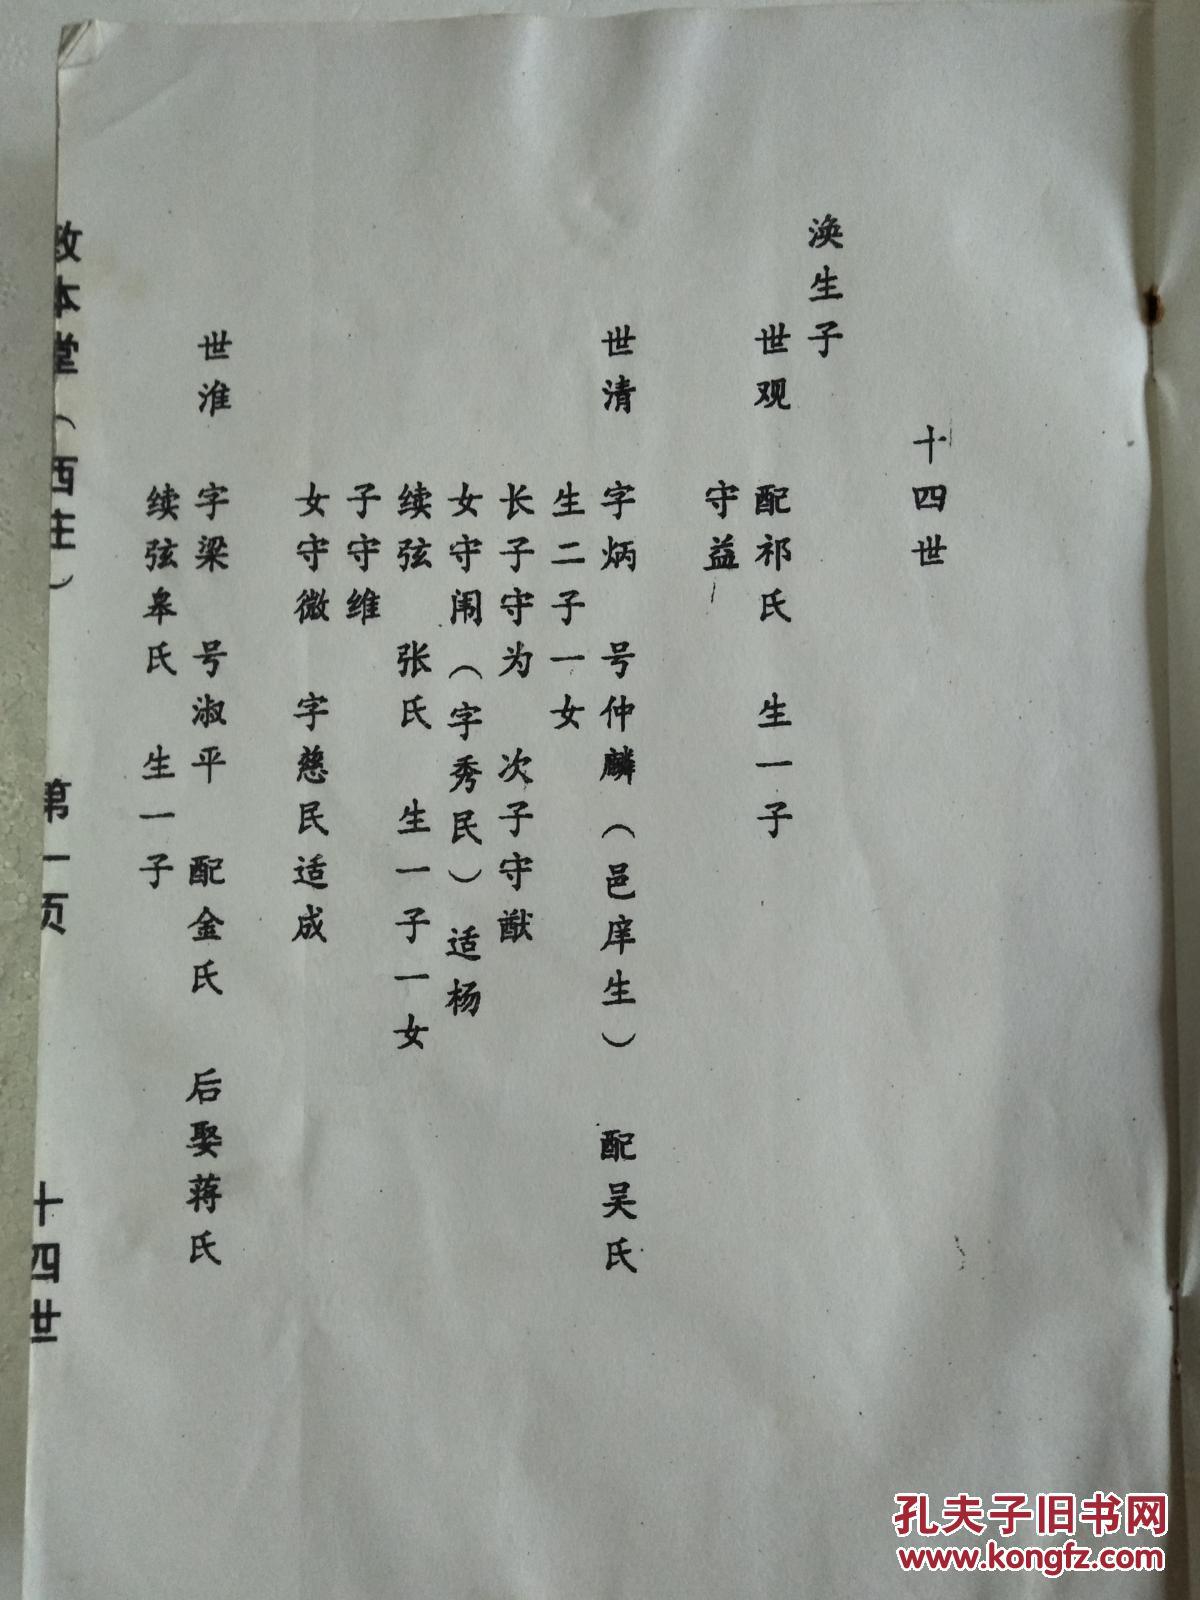 十四世
渙生子
世观 配祁氏 生一子
守益
世清 字炳 号仲麟（邑庠生） 配吴氏
生二子一女
长子守为 次子守猷
女守闱（字秀民）适杨
续弦 张氏 生一子一女
子守维
女守微 字慈民适成
世淮 字梁 号淑平 配金氏 后娶蒋氏
续弦皋氏 生一子
本堂（西庄） 第一页 十四世
孔夫子旧书网
www.kongfz.com